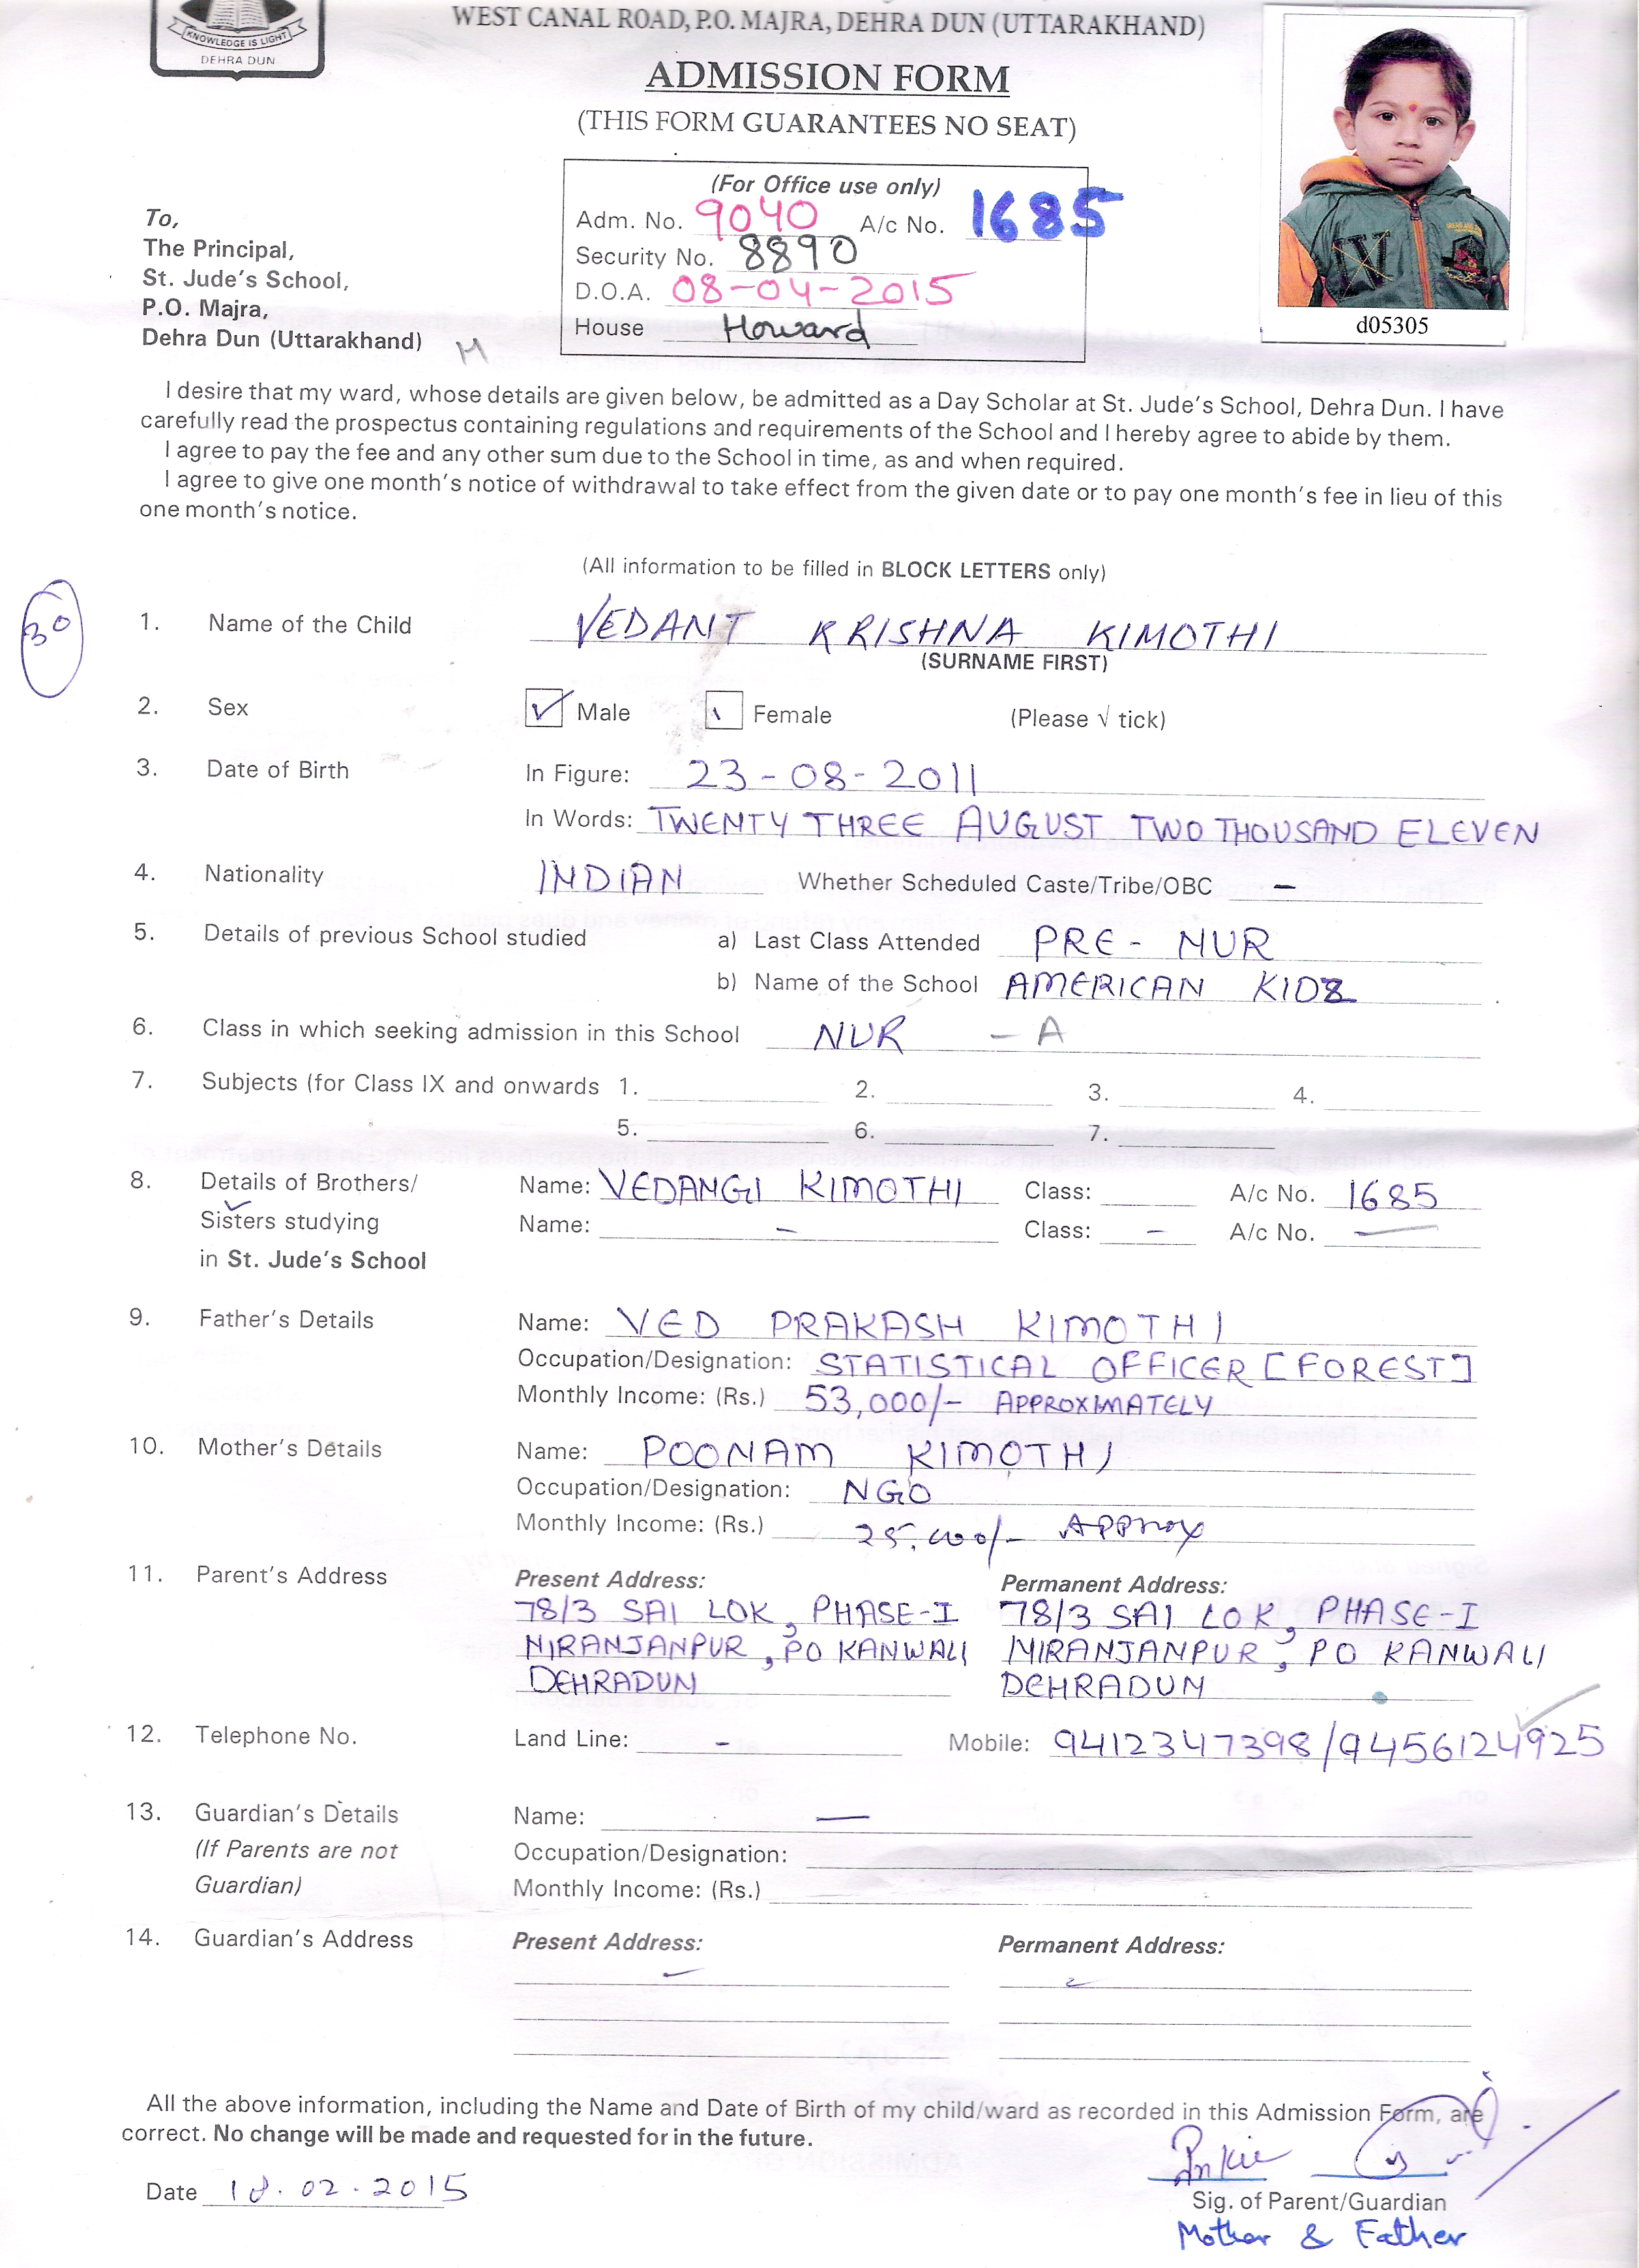 KNOWLEDGE IS LIGHT
DEHRA DUN
WEST CANAL ROAD, P.O. MAJRA, DEHRA DUN (UTTARAKHAND)
ADMISSION FORM
(THIS FORM GUARANTEES NO SEAT)
(For Office use only)
Adm. No. 9040 A/c No. 1685
Security No. 8890
D.O.A. 08-04-2015
House Howard
d05305
To,
The Principal,
St. Jude's School,
P.O. Majra,
Dehra Dun (Uttarakhand) M
I desire that my ward, whose details are given below, be admitted as a Day Scholar at St. Jude's School, Dehra Dun. I have
carefully read the prospectus containing regulations and requirements of the School and I hereby agree to abide by them.
I agree to pay the fee and any other sum due to the School in time, as and when required.
I agree to give one month's notice of withdrawal to take effect from the given date or to pay one month's fee in lieu of this
one month's notice.
(All information to be filled in BLOCK LETTERS only)
30
1. Name of the Child VEDANT KRISHNA KIMOTHI
(SURNAME FIRST)
2. Sex ✓ Male Female (Please √ tick)
3. Date of Birth In Figure: 23-08-2011
In Words: TWENTY THREE AUGUST TWO THOUSAND ELEVEN
4. Nationality INDIAN Whether Scheduled Caste/Tribe/OBC –
5. Details of previous School studied a) Last Class Attended PRE- NUR
b) Name of the School AMERICAN KIDZ
6. Class in which seeking admission in this School NUR - A
7. Subjects (for Class IX and onwards 1. 2. 3. 4.
5. 6. 7.
8. Details of Brothers/ Name: VEDANGI KIMOTHI Class: A/c No. 1685
Sisters studying Name: – Class: – A/c No. –
in St. Jude's School
9. Father's Details Name: VED PRAKASH KIMOTHI
Occupation/Designation: STATISTICAL OFFICER [FOREST]
Monthly Income: (Rs.) 53,000/- APPROXIMATELY
10. Mother's Details Name: POONAM KIMOTHI
Occupation/Designation: NGO
Monthly Income: (Rs.) 25,000/- APPROX
11. Parent's Address Present Address: Permanent Address:
78/3 SAI LOK, PHASE-I 78/3 SAI LOK, PHASE-I
NIRANJANPUR, PO KANWALI NIRANJANPUR, PO KANWALI
DEHRADUN DEHRADUN
12. Telephone No. Land Line: - Mobile: 9412347398/9456124925
13. Guardian's Details Name: –
(If Parents are not Occupation/Designation:
Guardian) Monthly Income: (Rs.)
14. Guardian's Address Present Address: Permanent Address:
All the above information, including the Name and Date of Birth of my child/ward as recorded in this Admission Form, are
correct. No change will be made and requested for in the future.
Date 18.02.2015
Sig. of Parent/Guardian
Mother & Father